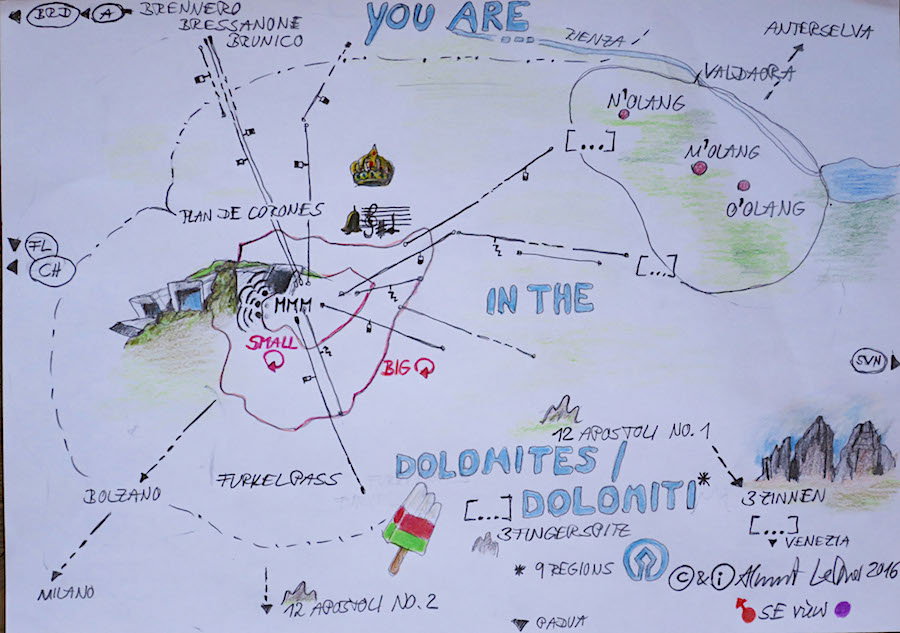 BRD
A
BRENNERO
BRESSANONE
BRUNICO
YOU ARE
RIENZA
ANTERSELVA
VALDAORA
N'OLANG
[...]
M'OLANG
O'OLANG
PLAN DE CORONES
FL
CH
[...]
IN THE
MMM
SMALL
BIG
SVN
12 APOSTOLI NO. 1
DOLOMITES /
DOLOMITI*
FURKELPASS
BOLZANO
[...]
3 FINGERSPITZ
3 ZINNEN
[...]
VENEZIA
* 9 REGIONS
© & i
2016
MILANO
12 APOSTOLI NO. 2
PADUA
SE VIEW